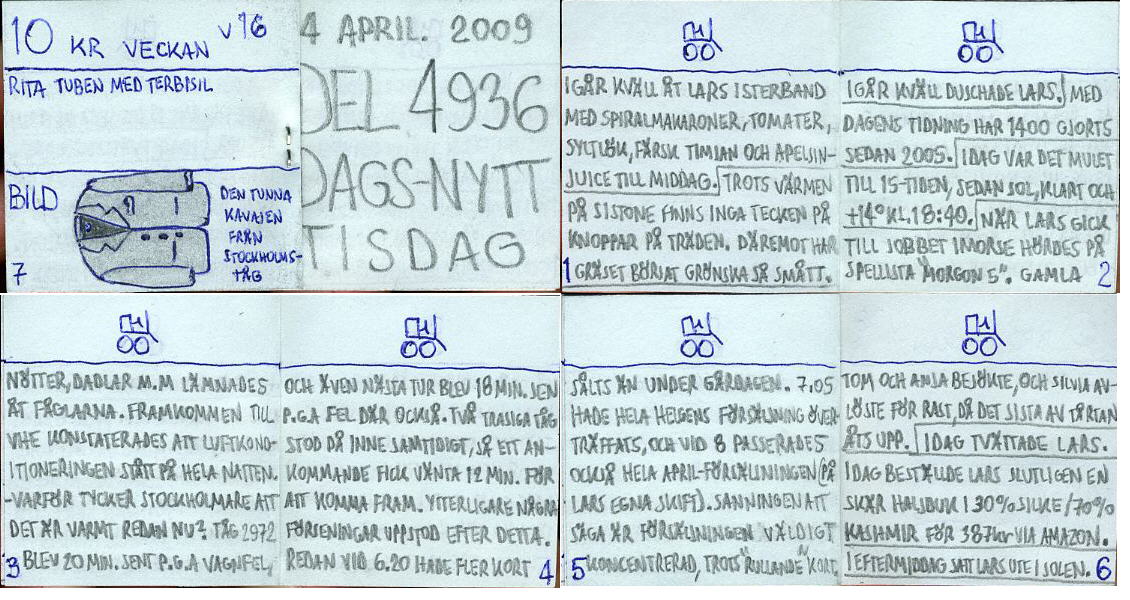 10 KR VECKAN V 16
RITA TUBEN MED TERBISIL
BILD
DEN TUNNA
KAVAJEN
FRÅN
STOCKHOLMS-
TÅG
7
4 APRIL. 2009
DEL 4936
DAGS-NYTT
TISDAG
IGÅR KVÄLL ÅT LARS ISTERBAND
MED SPIRALMAKARONER, TOMATER,
SYLTLÖK, FÄRSK TIMJAN OCH APELSIN-
JUICE TILL MIDDAG. TROTS VÄRMEN
PÅ SISTONE FINNS INGA TECKEN PÅ
KNOPPAR PÅ TRÄDEN. DÄREMOT HAR
GRÄSET BÖRJAT GRÖNSKA SÅ SMÅTT.
1
IGÅR KVÄLL DUSCHADE LARS. MED
DAGENS TIDNING HAR 1400 GJORTS
SEDAN 2005. IDAG VAR DET MULET
TILL 15-TIDEN, SEDAN SOL, KLART OCH
+14° KL.18:40. NÄR LARS GICK
TILL JOBBET IMORSE HÖRDES PÅ
SPELLISTA "MORGON 5". GAMLA
2
NÖTTER, DADLAR M.M LÄMNADES
ÅT FÅGLARNA. FRAMKOMMEN TILL
VHE KONSTATERADES ATT LUFTKOND-
ITIONERINGEN STÅTT PÅ HELA NATTEN.
-VARFÖR TYCKER STOCKHOLMARE ATT
DET ÄR VARMT REDAN NU? TÅG 2972
BLEV 20 MIN. SENT P.G.A VAGNFEL,
3
OCH ÄVEN NÄSTA TUR BLEV 18 MIN. SEN
P.G.A FEL DÄR OCKSÅ. TVÅ TRASIGA TÅG
STOD DÅ INNE SAMTIDIGT, SÅ ETT AN-
KOMMANDE FICK VÄNTA 12 MIN. FÖR
ATT KOMMA FRAM. YTTERLIGARE NÅGRA
FÖRSENINGAR UPPSTOD EFTER DETTA.
REDAN VID 6.20 HADE FLER KORT
4
SÅLTS ÄN UNDER GÅRDAGEN. 7.05
HADE HELA HELGENS FÖRSÄLJNING ÖVER-
TRÄFFATS, OCH VID 8 PASSERADES
OCKSÅ HELA APRIL-FÖRSÄLJNINGEN (PÅ
LARS EGNA SKIFT). SANNINGEN ATT
SÄGA ÄR FÖRSÄLJNINGEN VÄLDIGT
KONCENTRERAD, TROTS "RULLANDE" KORT.
5
TOM OCH ANJA BESÖKTE, OCH SILVIA AV-
LÖSTE FÖR RAST, DÅ DET SISTA AV TÅRTAN
ÅTS UPP. IDAG TVÄTTADE LARS.
IDAG BESTÄLLDE LARS SLUTLIGEN EN
SKÄR HALSDUK I 30% SILKE/70%
KASHMIR FÖR 387kr VIA AMAZON.
I EFTERMIDDAG SATT LARS UTE I SOLEN.
6